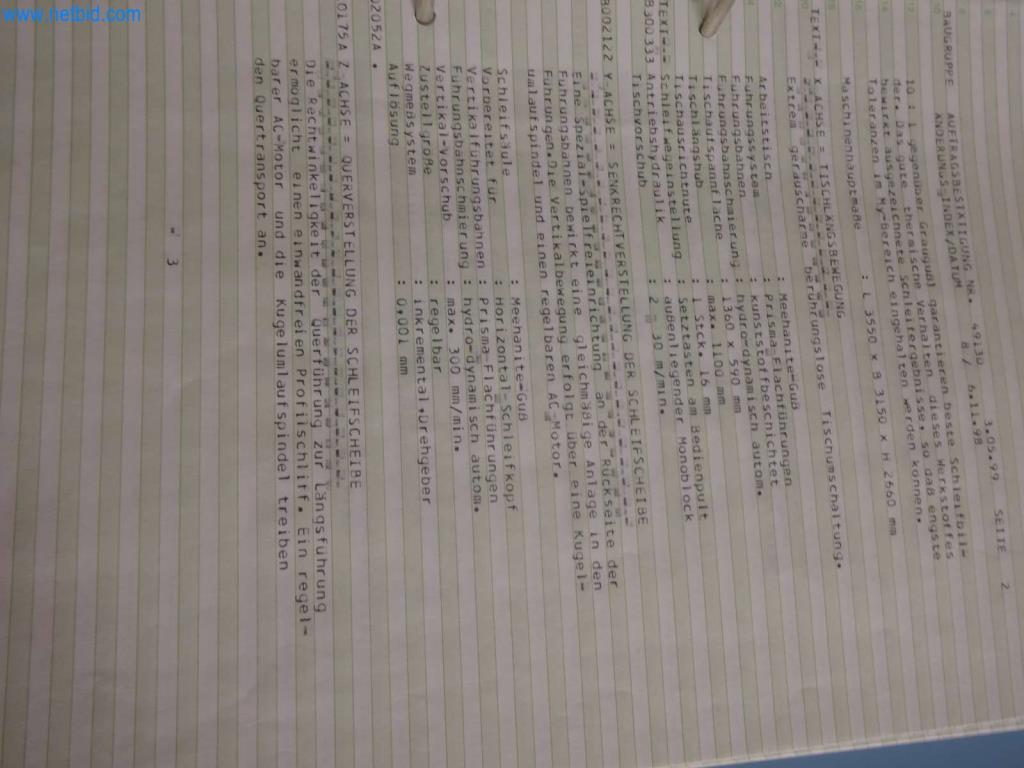 www.netbid.com
3.05.99 SEITE 2
BAUGRUPPE AUFTRAGSBESTÄTIGUNG NR. 49130
ÄNDERUNGS-INDEX/DATUM B / 6.11.98
10 : 1 gegenüber Grauguß garantieren beste Schleifbil-
der. Das gute thermische Verhalten dieses Werkstoffes
bewirkt ausgezeichnete Schleifergebnisse, so daß engste
Toleranzen im My-Bereich eingehalten werden können.
Maschinenhauptmaße : L 3550 x B 3150 x H 2660 mm
TEXT X ACHSE = TISCHLÄNGSBEWEGUNG
Extrem geräuscharme berührungslose Tischumschaltung.
Arbeitstisch : Meehanite-Guß
Führungssystem : Prisma-Flachführungen
Führungsbahnen : kunststoffbeschichtet
Führungsbahnschmierung : hydro-dynamisch autom.
Tischaufspannfläche : 1360 x 590 mm
Tischlängshub : max. 1100 mm
Tischausrichtnute : 1 Stck. 16 mm
TEXT Schleifwegeinstellung : Setztasten am Bedienpult
B300333 Antriebshydraulik : außenliegender Monoblock
Tischvorschub : 2 - 30 m/min.
B002122 Y ACHSE = SENKRECHTVERSTELLUNG DER SCHLEIFSCHEIBE
Eine Spezial-Spielfreieinrichtung an der Rückseite der
Führungsbahnen bewirkt eine gleichmäßige Anlage in den
Führungen. Die Vertikalbewegung erfolgt über eine Kugel-
umlaufspindel und einen regelbaren AC-Motor.
Schleifsäule : Meehanite-Guß
Vorbereitet für : Horizontal-Schleifkopf
Vertikalführungsbahnen : Prisma-Flachführungen
Führungsbahnschmierung : hydro-dynamisch autom.
Vertikal-Vorschub : max. 300 mm/min.
Zustellgröße : regelbar
Wegmeßsystem : inkremental-Drehgeber
Auflösung : 0,001 mm
02052A .
0175A Z ACHSE = QUERVERSTELLUNG DER SCHLEIFSCHEIBE
Die Rechtwinkeligkeit der Querführung zur Längsführung
ermöglicht einen einwandfreien Profilschliff. Ein regel-
barer AC-Motor und die Kugelumlaufspindel treiben
den Quertransport an.
3